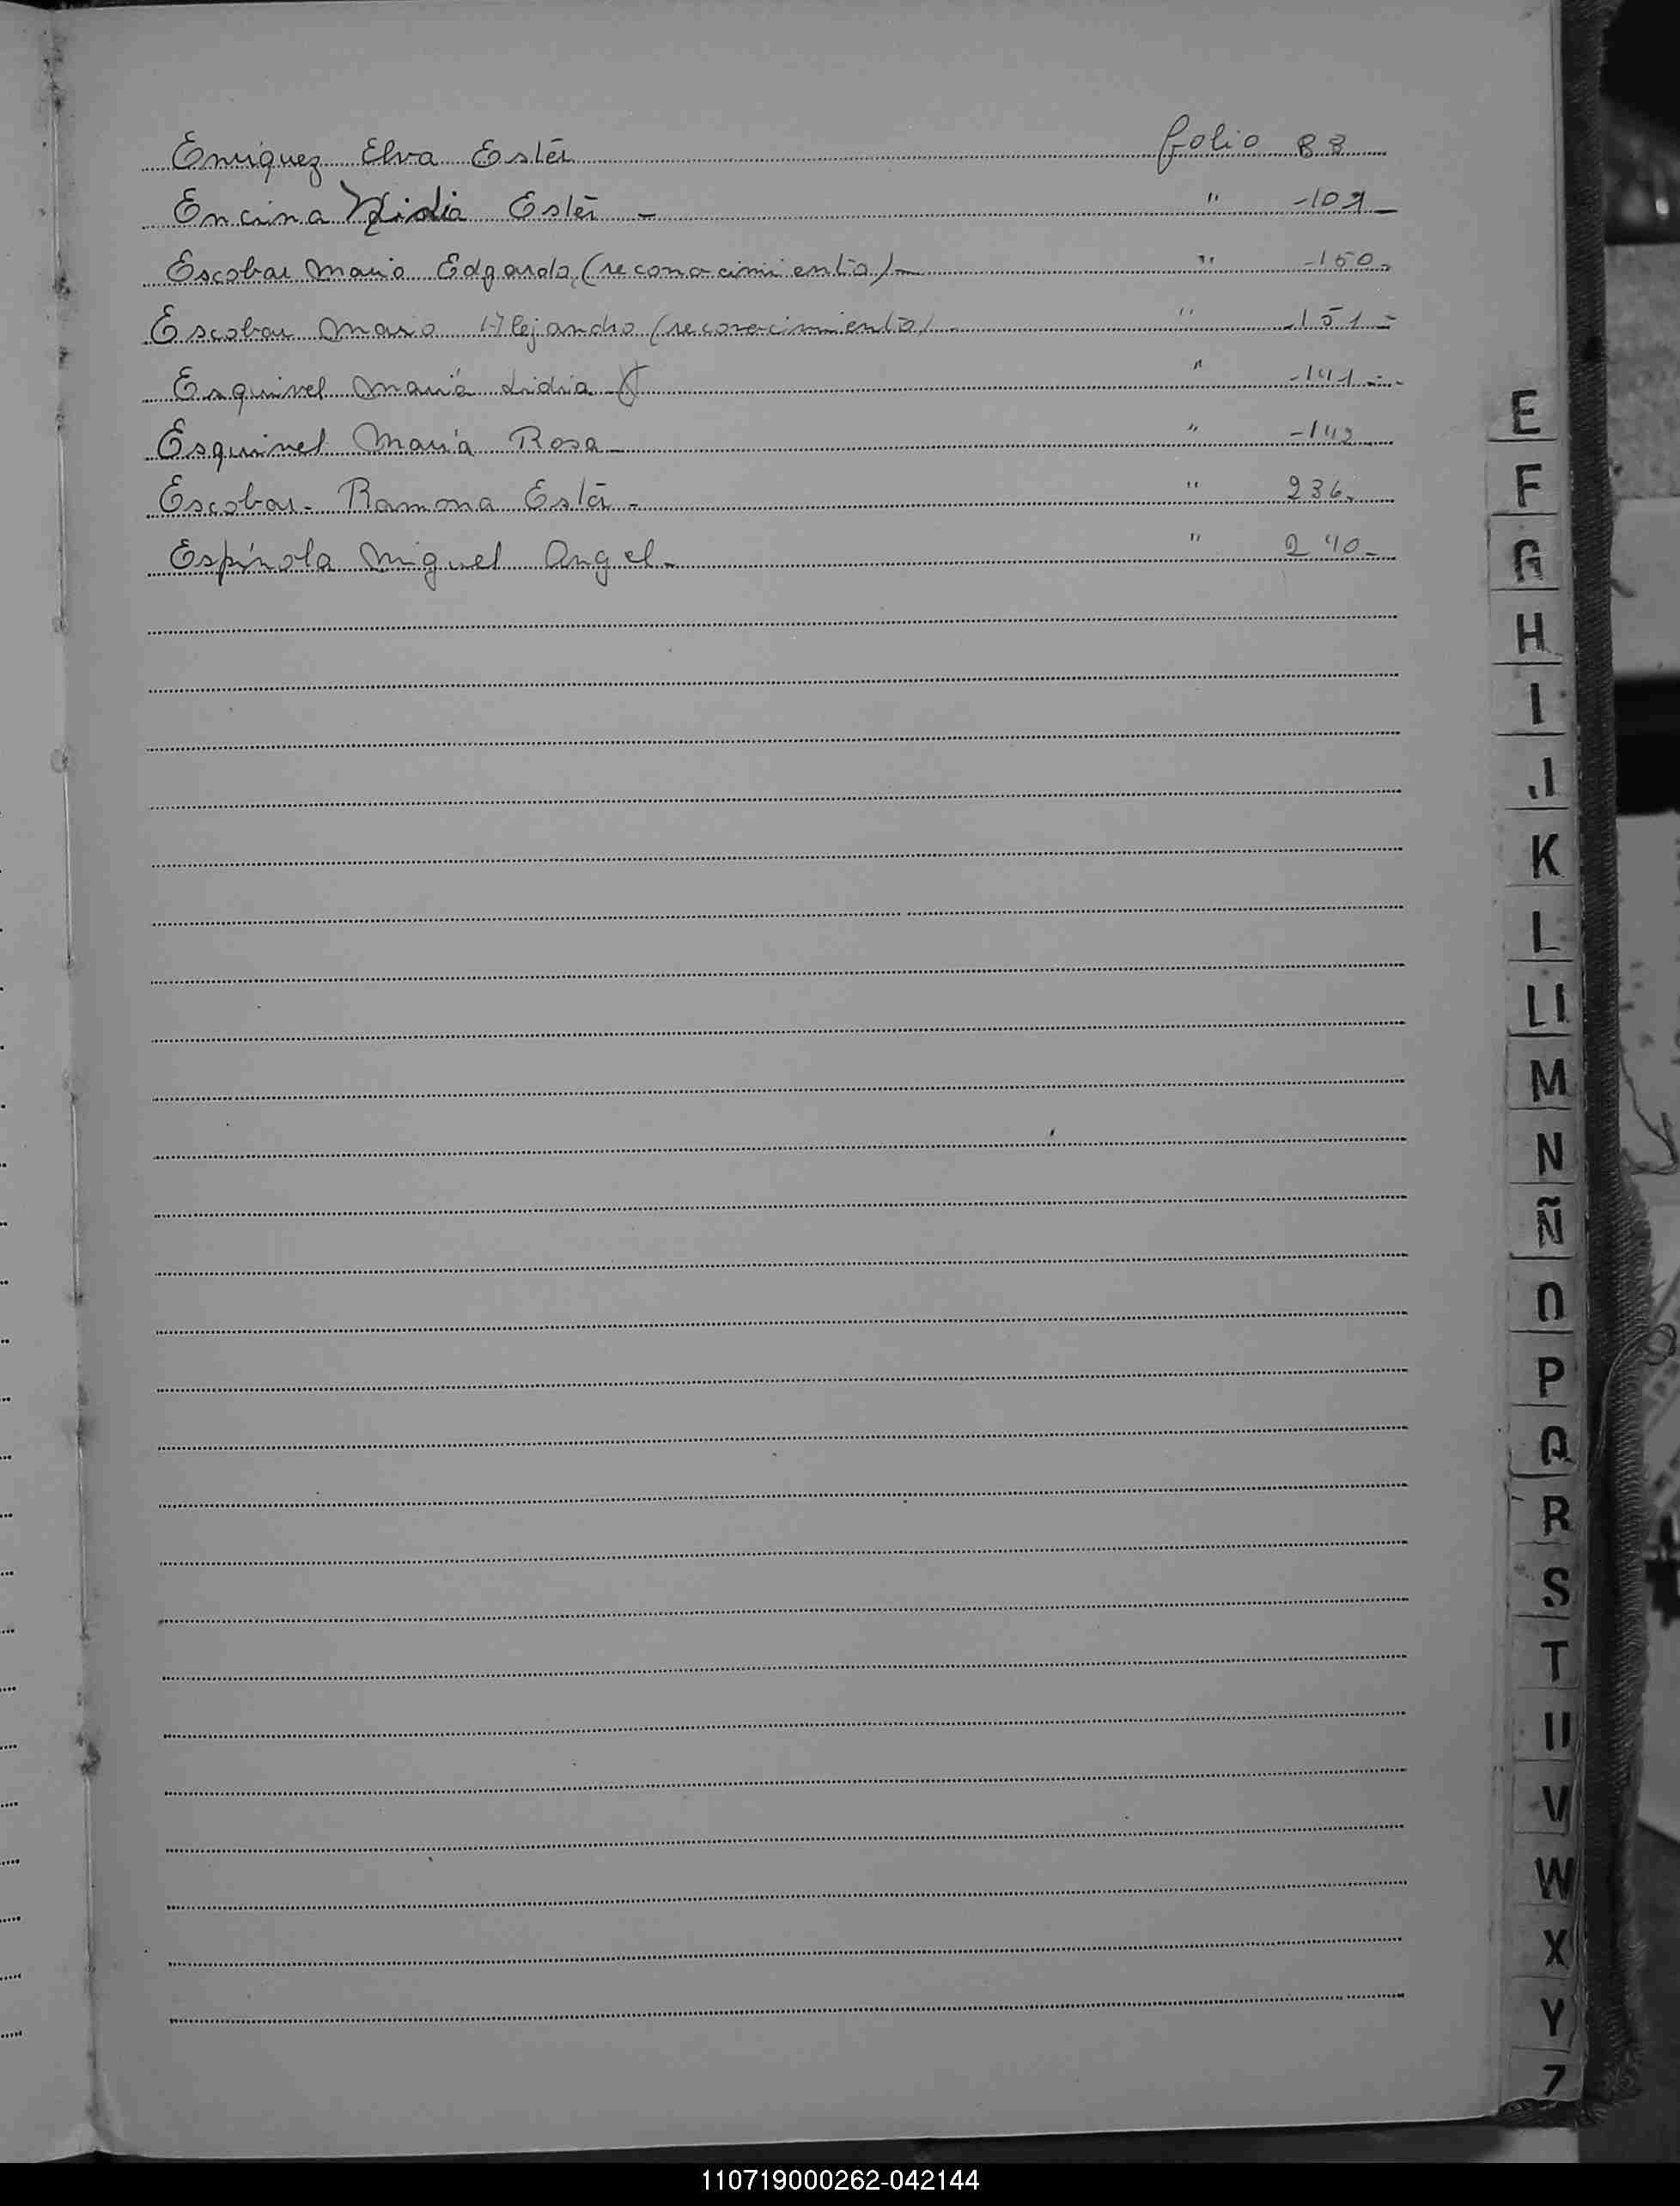 Enriquez Elva Ester folio 83
Encina Lidia Ester - " -109-
Escobar Mario Edgardo (reconocimiento)- " -150-
Escobar Mario Alejandro (reconocimiento) " -151-
Esquivel María Lidia " -141-
Esquivel María Rosa - " -142
Escobar - Ramona Ester - " 236.
Espínola Miguel Angel - " 240-
E
F
G
H
I
J
K
L
Ll
M
N
Ñ
O
P
Q
R
S
T
U
V
W
X
Y
Z
110719000262-042144